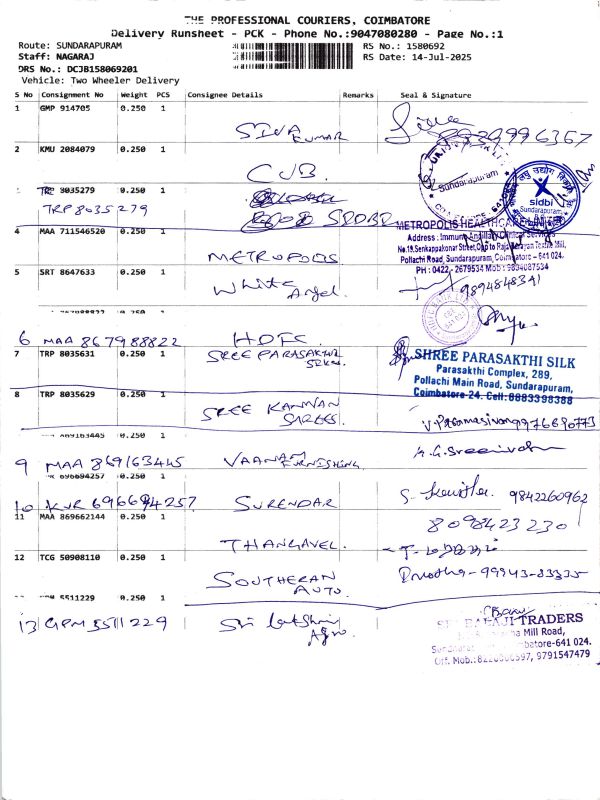 THE PROFESSIONAL COURIERS, COIMBATORE
Delivery Runsheet - PCK - Phone No.:9047080280 - Page No.:1
Route: SUNDARAPURAM
RS No.: 1580692
Staff: NAGARAJ
RS Date: 14-Jul-2025
DRS No.: DCJB158069201
Vehicle: Two Wheeler Delivery
S No Consignment No Weight PCS Consignee Details Remarks Seal & Signature
1 GMP 914705 0.250 1
SIVA KUMAR
9939996367
2 KMU 2084079 0.250 1
CUB
Sundarapuram
TRP 8035279 0.250 1
TRP 8035279
SIDBI
sidbi
Sundarapuram
4 MAA 711546520 0.250 1
METROPOLIS
METROPOLIS HEALTHCARE
Pollachi Road, Sundarapuram, Coimbatore - 641 024.
PH : 0422 - 2679534 Mob : 9894087534
5 SRT 8647633 0.250 1
White Angel
9894848341
0.250 1
6 MAA 867988822 HDFC
7 TRP 8035631 0.250 1
SREE PARASAKTHI SILKS
SHREE PARASAKTHI SILK
Parasakthi Complex, 289,
Pollachi Main Road, Sundarapuram,
Coimbatore-24. Cell:8883398388
8 TRP 8035629 0.250 1
SREE KANNAN SAREES
9976690773
0.250 1
9 MAA 869163445 VAANAM FURNISHING
A.G.Sreenivasan
0.250 1
10 KUR 696694257 SURENDAR
9842260962
11 MAA 869662144 0.250 1
8098423230
THANGAVEL
12 TCG 50908110 0.250 1
SOUTHERAN AUTO
99943-83335
5511229 0.250 1
13 GPM 5511229 Sri Lakshmi Agro
SRI BALAJI TRADERS
Mill Road,
Coimbatore-641 024.
9791547479